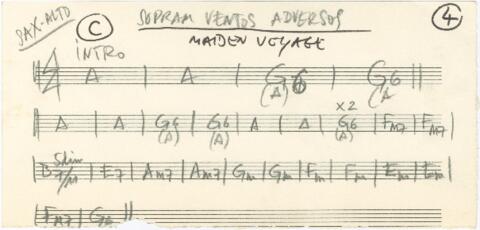 SAX-ALTO C SOPRAM VENTOS ADVERSOS 4
MAIDEN VOYAGE
INTRO
4 A | A | G6 | G6 ||
(A) (A
x2
A | A | G6 | G6 | A | A | G6 | Fm7 | Fm7 |
(A) (A) (A)
B7/ | E7 | Am7 | Am7 | Gm | Gm | Fm | Fm | Em | Em |
Fm7 | G6 ||